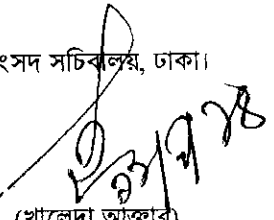 ংসদ সচিবালয়, ঢাকা।
(খালেদা আক্তার)